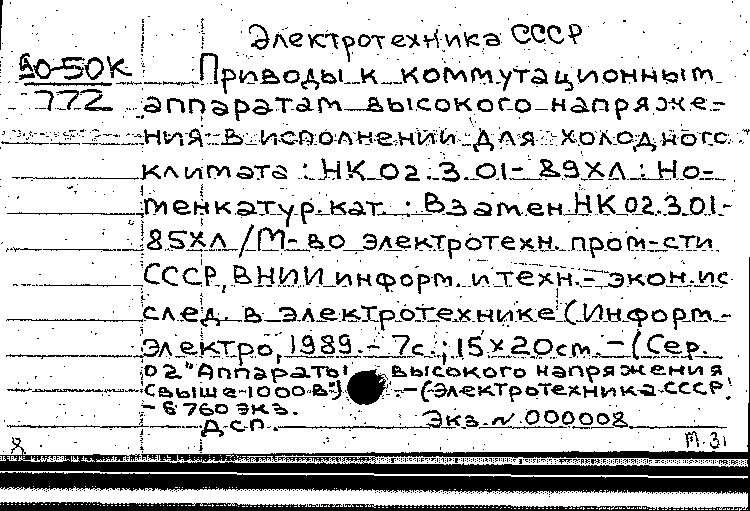 Электротехника СССР
50-50К
772
Приводы к коммутационным
аппаратам высокого напряже-
ния в исполнении для холодного
климата : НК 02.3.01-89ХЛ : Но-
менкатур. кат. : Взамен НК 02.3.01-
85ХЛ /М-во электротехн. пром-сти
СССР, ВНИИ информ. и техн.-экон. ис
след. в электротехнике (Информ-
электро, 1989. - 7с.; 15×20см. - (Сер.
02 "Аппараты высокого напряжения
свыше 1000 В") - (Электротехника СССР!
- 6760 экз.
ДСП. Экз. N 000008
М. 31